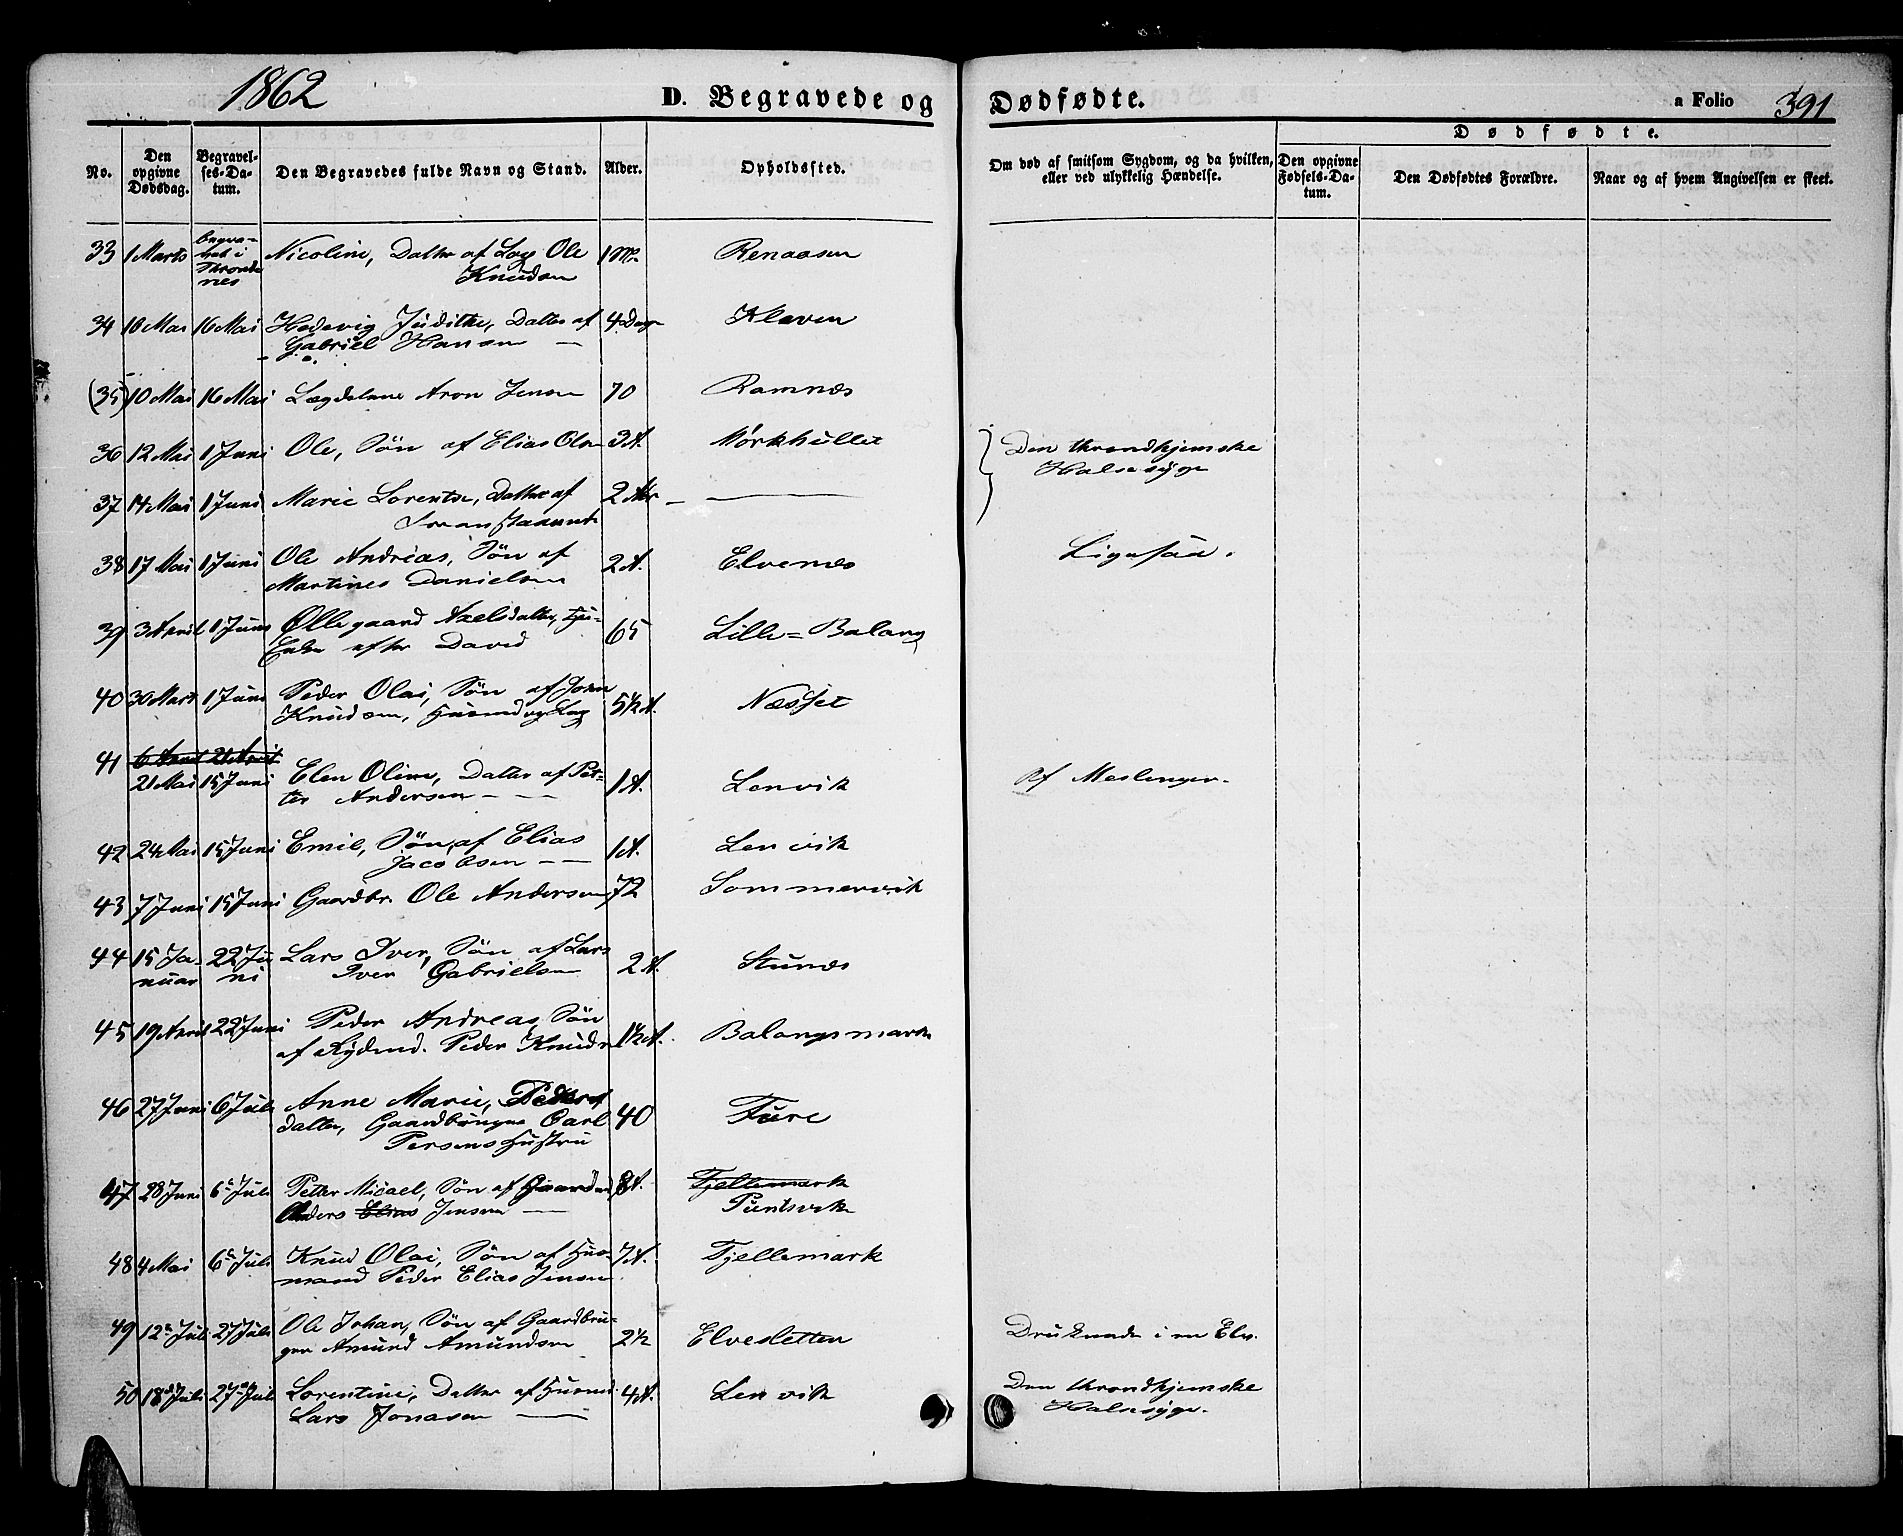 1862
D. Begravede og Dødfødte.
a Folio 391
No.
Den opgivne Dødsdag.
Begravelses-Datum.
Den Begravedes fulde Navn og Stand.
Alder.
Opholdssted.
Om død af smitsom Sygdom, og da hvilken, eller ved ulykkelig Hændelse.
Dødfødte.
Den opgivne Fødsels-Datum.
Den Dødfødtes Forældre.
Naar og af hvem Angivelsen er skeet.
33 1 Marts Nicoline, Datter af Log. Ole 1 M. Renaasen
Knudsen
34 10 Mai 16 Mai Hedevig Judithe, Datter af 4 Dage Kleven
Gabriel Hansen —
(35) 10 Mai 16 Mai Lægdslem Aron Jensen 70 Ramnæs
36 12 Mai 1 Juni Ole, Søn af Elias Olsen 3 A. Mørkhullet Den throndhjemske
Halssyge
37 14 Mai 1 Juni Marie Lorentse, Datter af 2 Aar — —
38 17 Mai 1 Juni Ole Andreas, Søn af 2 A. Elvenæs Ligesaa.
Martines Danielsen
39 3 April 1 Juni Ollegaard Axelsdatter, 65 Lille=Balang
Enke efter David
40 30 Marts 1 Juni Peder Olai, Søn af John 5½ A. Næsset
Knudsen, Husmd og Log
41 6 April 21 April
21 Mai 15 Juni Elen Oline, Datter af Pet- 1 A. Lenvik Af Meslenger.
ter Andersen — —
42 24 Mai 15 Juni Emil, Søn af Elias 1 A. Lenvik
Jacobsen — —
43 7 Juni 15 Juni Gaardbr. Ole Andersen 72 Sommervik
44 15 Ja- 22 Ju- Lars Iver, Søn af Lars 2 A. Stunæs
nuar ni Iver Gabrielsen
45 19 April 22 Juni Peder Andreas Søn 1½ A. Balangsmark
af Rydmd. Peder Knuds
46 27 Juni 6 Juli Anne Marie, Peders 40 Fure
datter, Gaardbruger Carl
Persens Hustru
47 28 Juni 6te Juli Petter Micael, Søn af Gaardmd 8 A. Fjellemark
Anders Elias Jensen — Puntsvik
48 4 Mai 6te Juli Knud Olai, Søn af Hus- 7 A. Fjellemark
mand Peder Elias Jensen
49 12te Juli 27 Juli Ole Johan, Søn af Gaardbru- 2½ Elvesletten Druknede i en Elv.
ger Amund Amundsen
50 18de Juli 27de Juli Lorentine, Datter af Husmd. 4 A. Lenvik Den throndhjemske
Lars Jonasen — Halssyge.